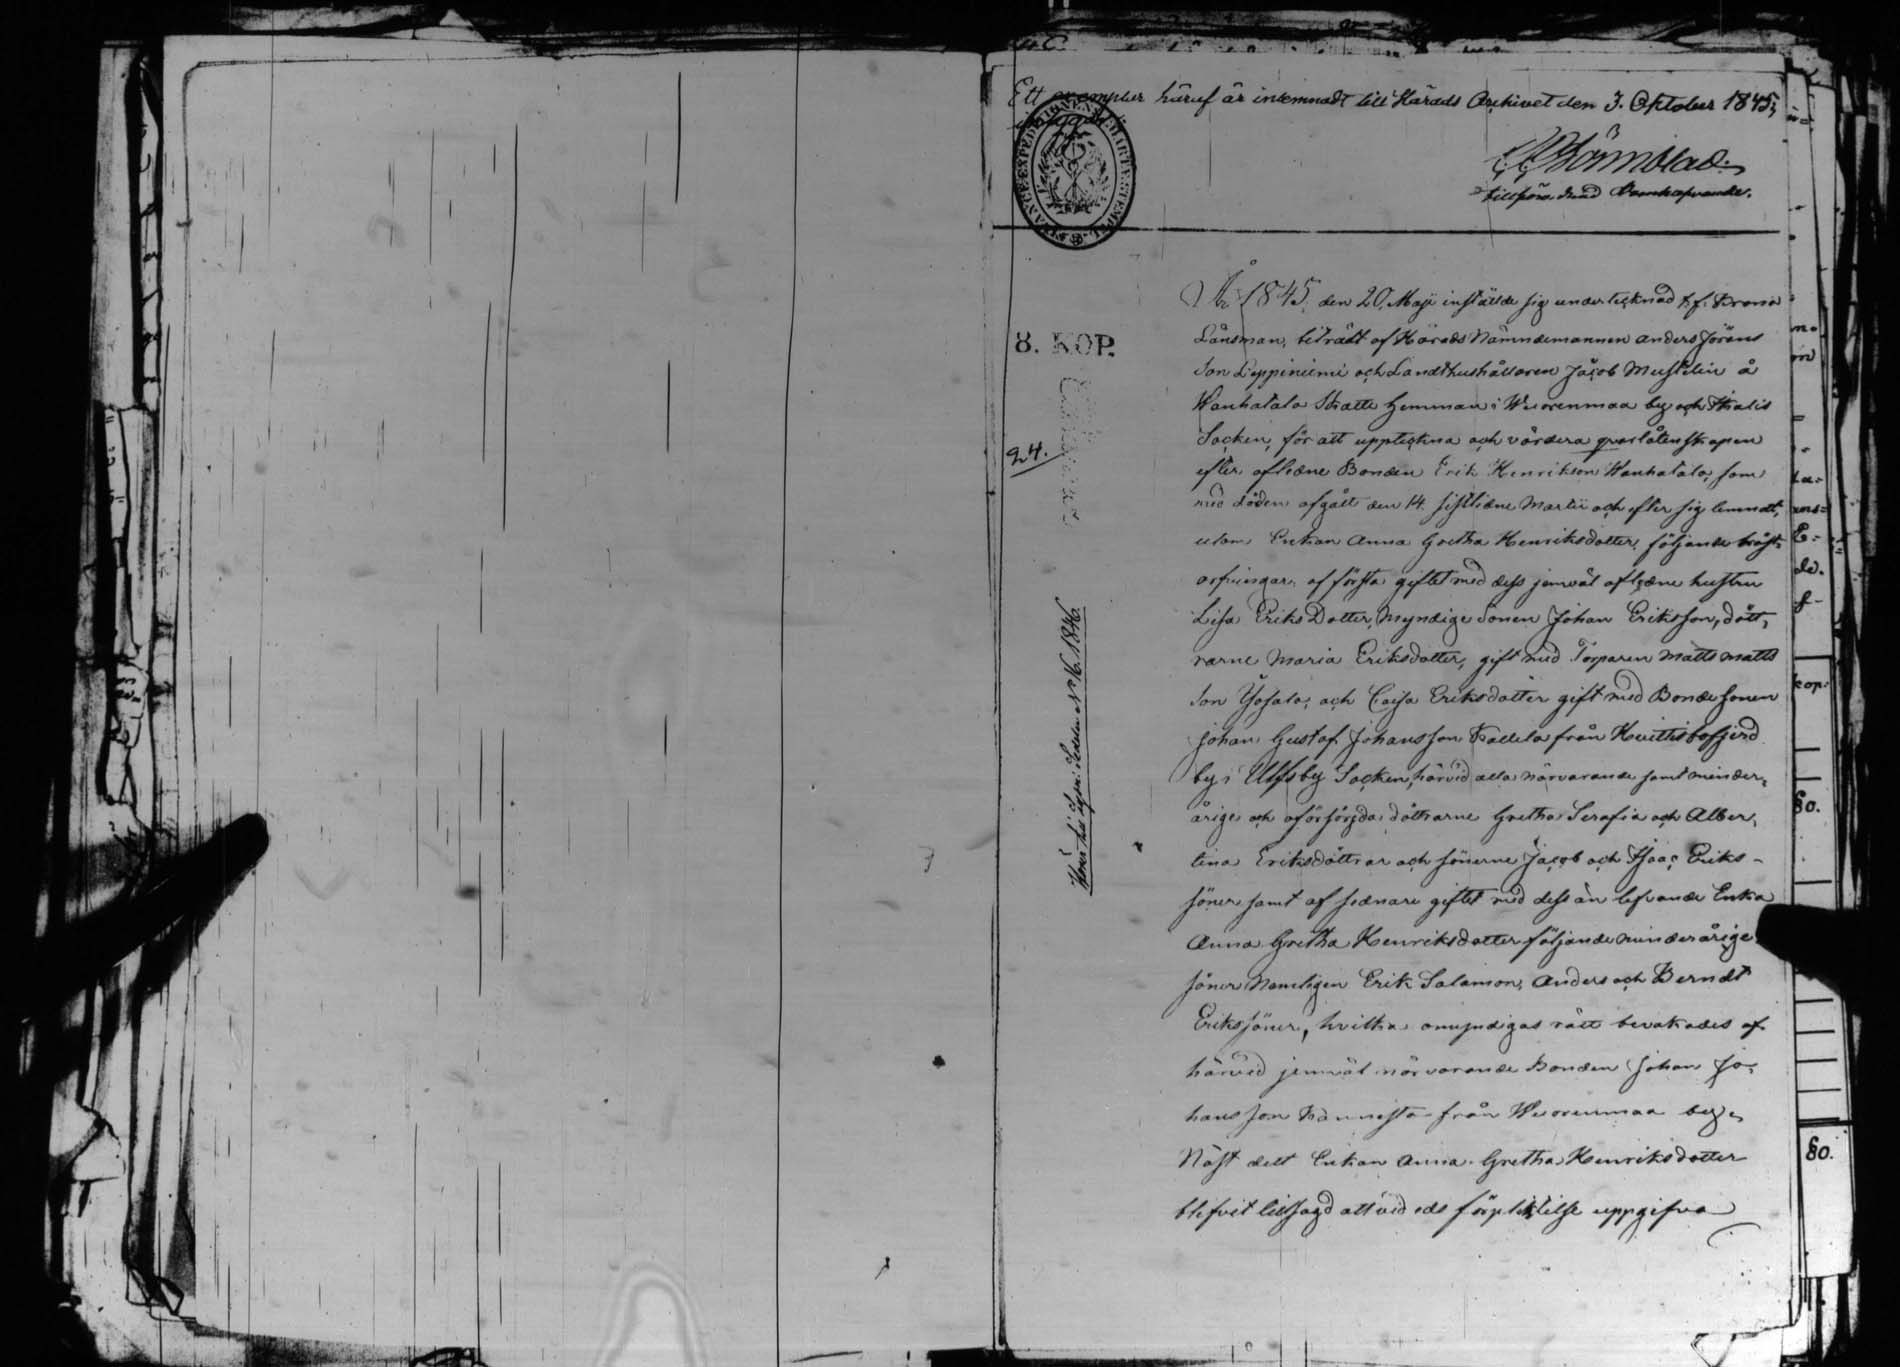 Ett exemplar häruf är inlemnadt till Härads Archivet den 3. Oktober 1845;
tillförordnad Domhafvande.
8. KOP.
24.
Hörer till Ingifn: Sedeln N:o 16. 1846.
År 1845, den 20. Maji instälde sig undertecknad t.f. Krono
Länsman, biträdt af Härads Nämndemannen Anders Jörans
son Leppiniemi och Landthushållaren Jacob Mustelin å
Wanhatalo Skatte hemman i Wuorenmaa by och Kjulo
Socken, för att uppteckna och värdera qvarlåtenskapen
efter aflidne Bonden Erik Henrikson Wanhatalo, som
med döden afgått den 14. sistlidne Martii och efter sig lemnat,
utom Enkan Anna Gretha Henriksdotter, följande bröst-
arfvingar, af första giftet med dess jemväl aflidne hustru
Lisa Eriks Dotter, Myndige Sonen Johan Eriksson, dött-
rarne Maria Eriksdotter, gift med Torparen Matts Matts
son Yösalo, och Caisa Eriksdotter gift med Bondesonen
Johan Gustaf Johansson från
by i Ulfsby Socken, härvid alla närvarande samt minder-
årige och oförsörjda döttrarne Gretha Serafia och Alber-
tina Eriksdöttrar och sönerne Jacob och Isaac Eriks-
söner samt af sednare giftet med dess än lefvande Enka
Anna Gretha Henriksdotter följande minderårige
söner Nemligen Erik Salamon, Anders och Berndt
Erikssöner, hvilka omyndigas rätt bevakades af
härvid jemväl närvarande Bonden Johan Jo-
hansson från Wuorenmaa by.
Näst det Enkan Anna Gretha Henriksdotter
blifvit tillsagd att vid eds förpliktelse uppgifva
§0.
kop:
§0.